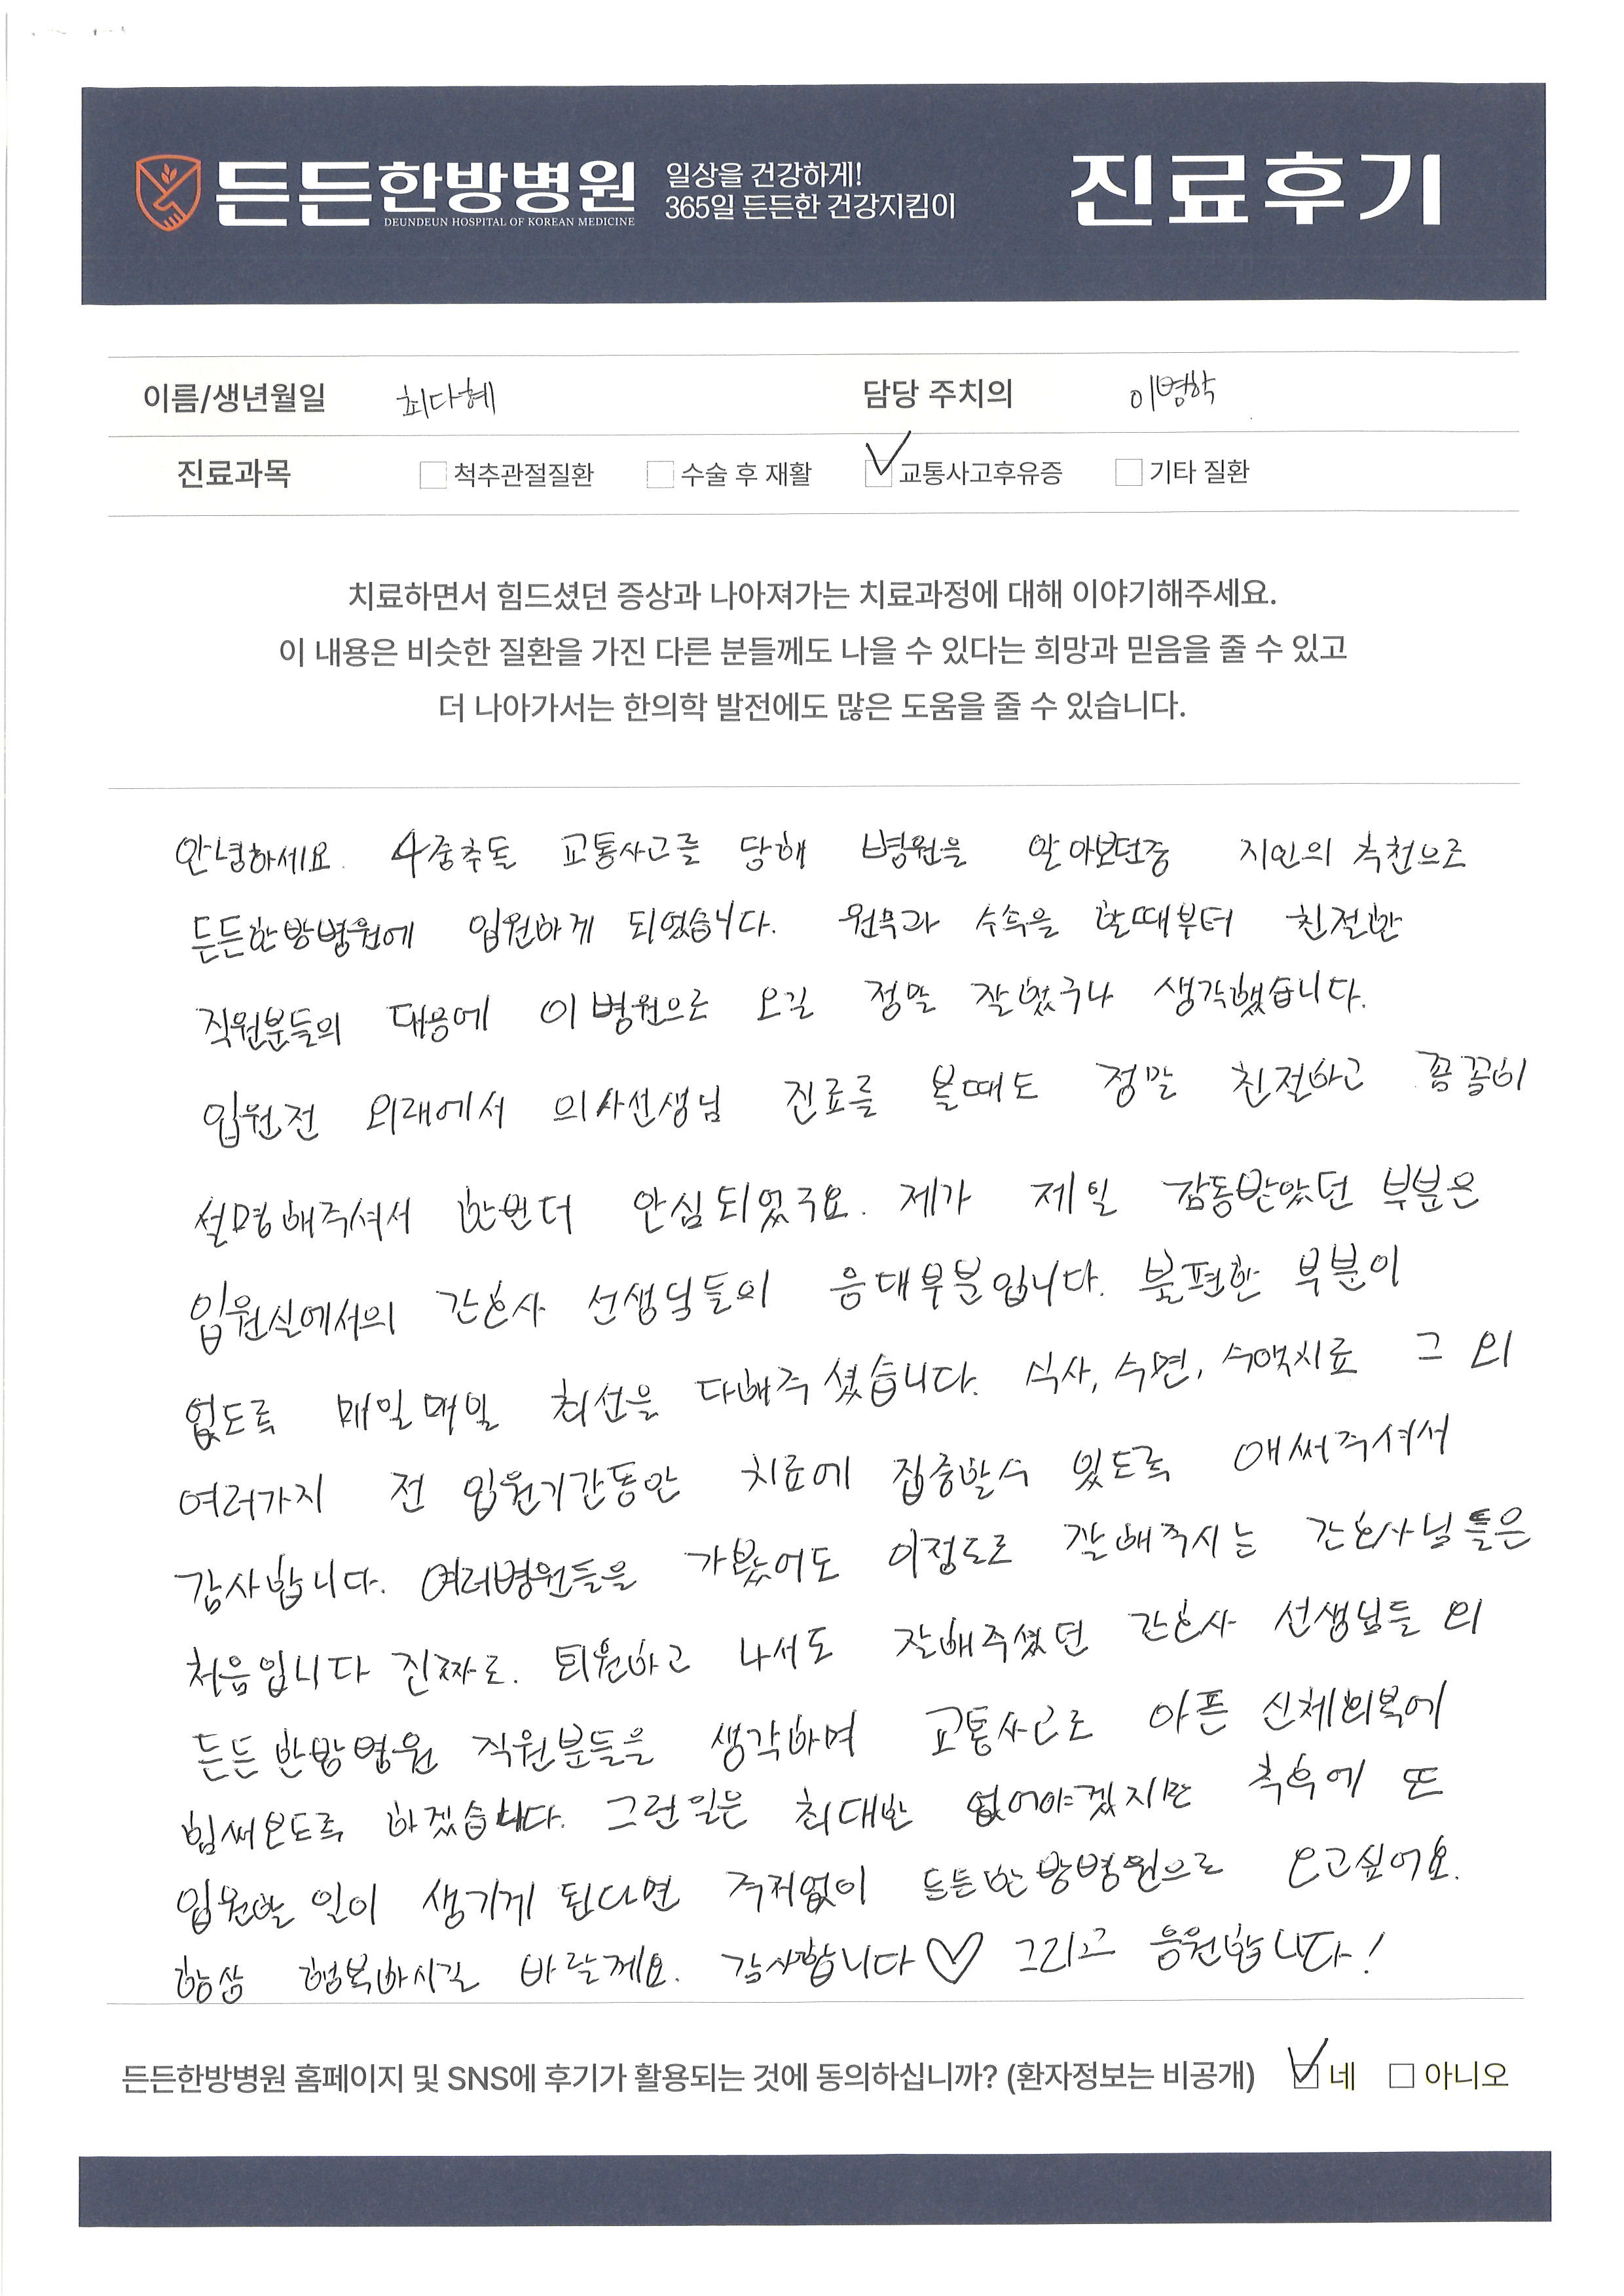 든든한방병원
DEUNDEUN HOSPITAL OF KOREAN MEDICINE
일상을 건강하게!
365일 든든한 건강지킴이
진료후기
이름/생년월일 최다혜 담당 주치의 이병학
진료과목 척추관절질환 수술 후 재활 교통사고후유증 기타 질환
치료하면서 힘드셨던 증상과 나아져가는 치료과정에 대해 이야기해주세요.
이 내용은 비슷한 질환을 가진 다른 분들께도 나을 수 있다는 희망과 믿음을 줄 수 있고
더 나아가서는 한의학 발전에도 많은 도움을 줄 수 있습니다.
안녕하세요. 4중추돌 교통사고를 당해 병원을 알아보던중 지인의 추천으로
든든한방병원에 입원하게 되었습니다. 원무과 수속을 할때부터 친절한
직원분들의 대응에 이 병원으로 오길 정말 잘했구나 생각했습니다.
입원전 외래에서 의사선생님 진료를 볼때도 정말 친절하고 꼼꼼히
설명해주셔서 한번더 안심되었구요. 제가 제일 감동받았던 부분은
입원실에서의 간호사 선생님들의 응대부분입니다. 불편한 부분이
없도록 매일매일 최선을 다해주셨습니다. 식사, 수면, 수액치료 그 외
여러가지 전 입원기간동안 치료에 집중할수 있도록 애써주셔서
감사합니다. 여러병원들을 가봤어도 이정도로 잘해주시는 간호사님들은
처음입니다 진짜로. 퇴원하고 나서도 잘해주셨던 간호사 선생님들 외
든든한방병원 직원분들을 생각하며 교통사고로 아픈 신체회복에
힘써보도록 하겠습니다. 그런일은 최대한 없어야겠지만 추후에 또
입원할 일이 생기게 된다면 주저없이 든든한방병원으로 오고싶어요.
항상 행복하시길 바랄게요. 감사합니다♡ 그리고 응원합니다!
든든한방병원 홈페이지 및 SNS에 후기가 활용되는 것에 동의하십니까? (환자정보는 비공개) 네 아니오